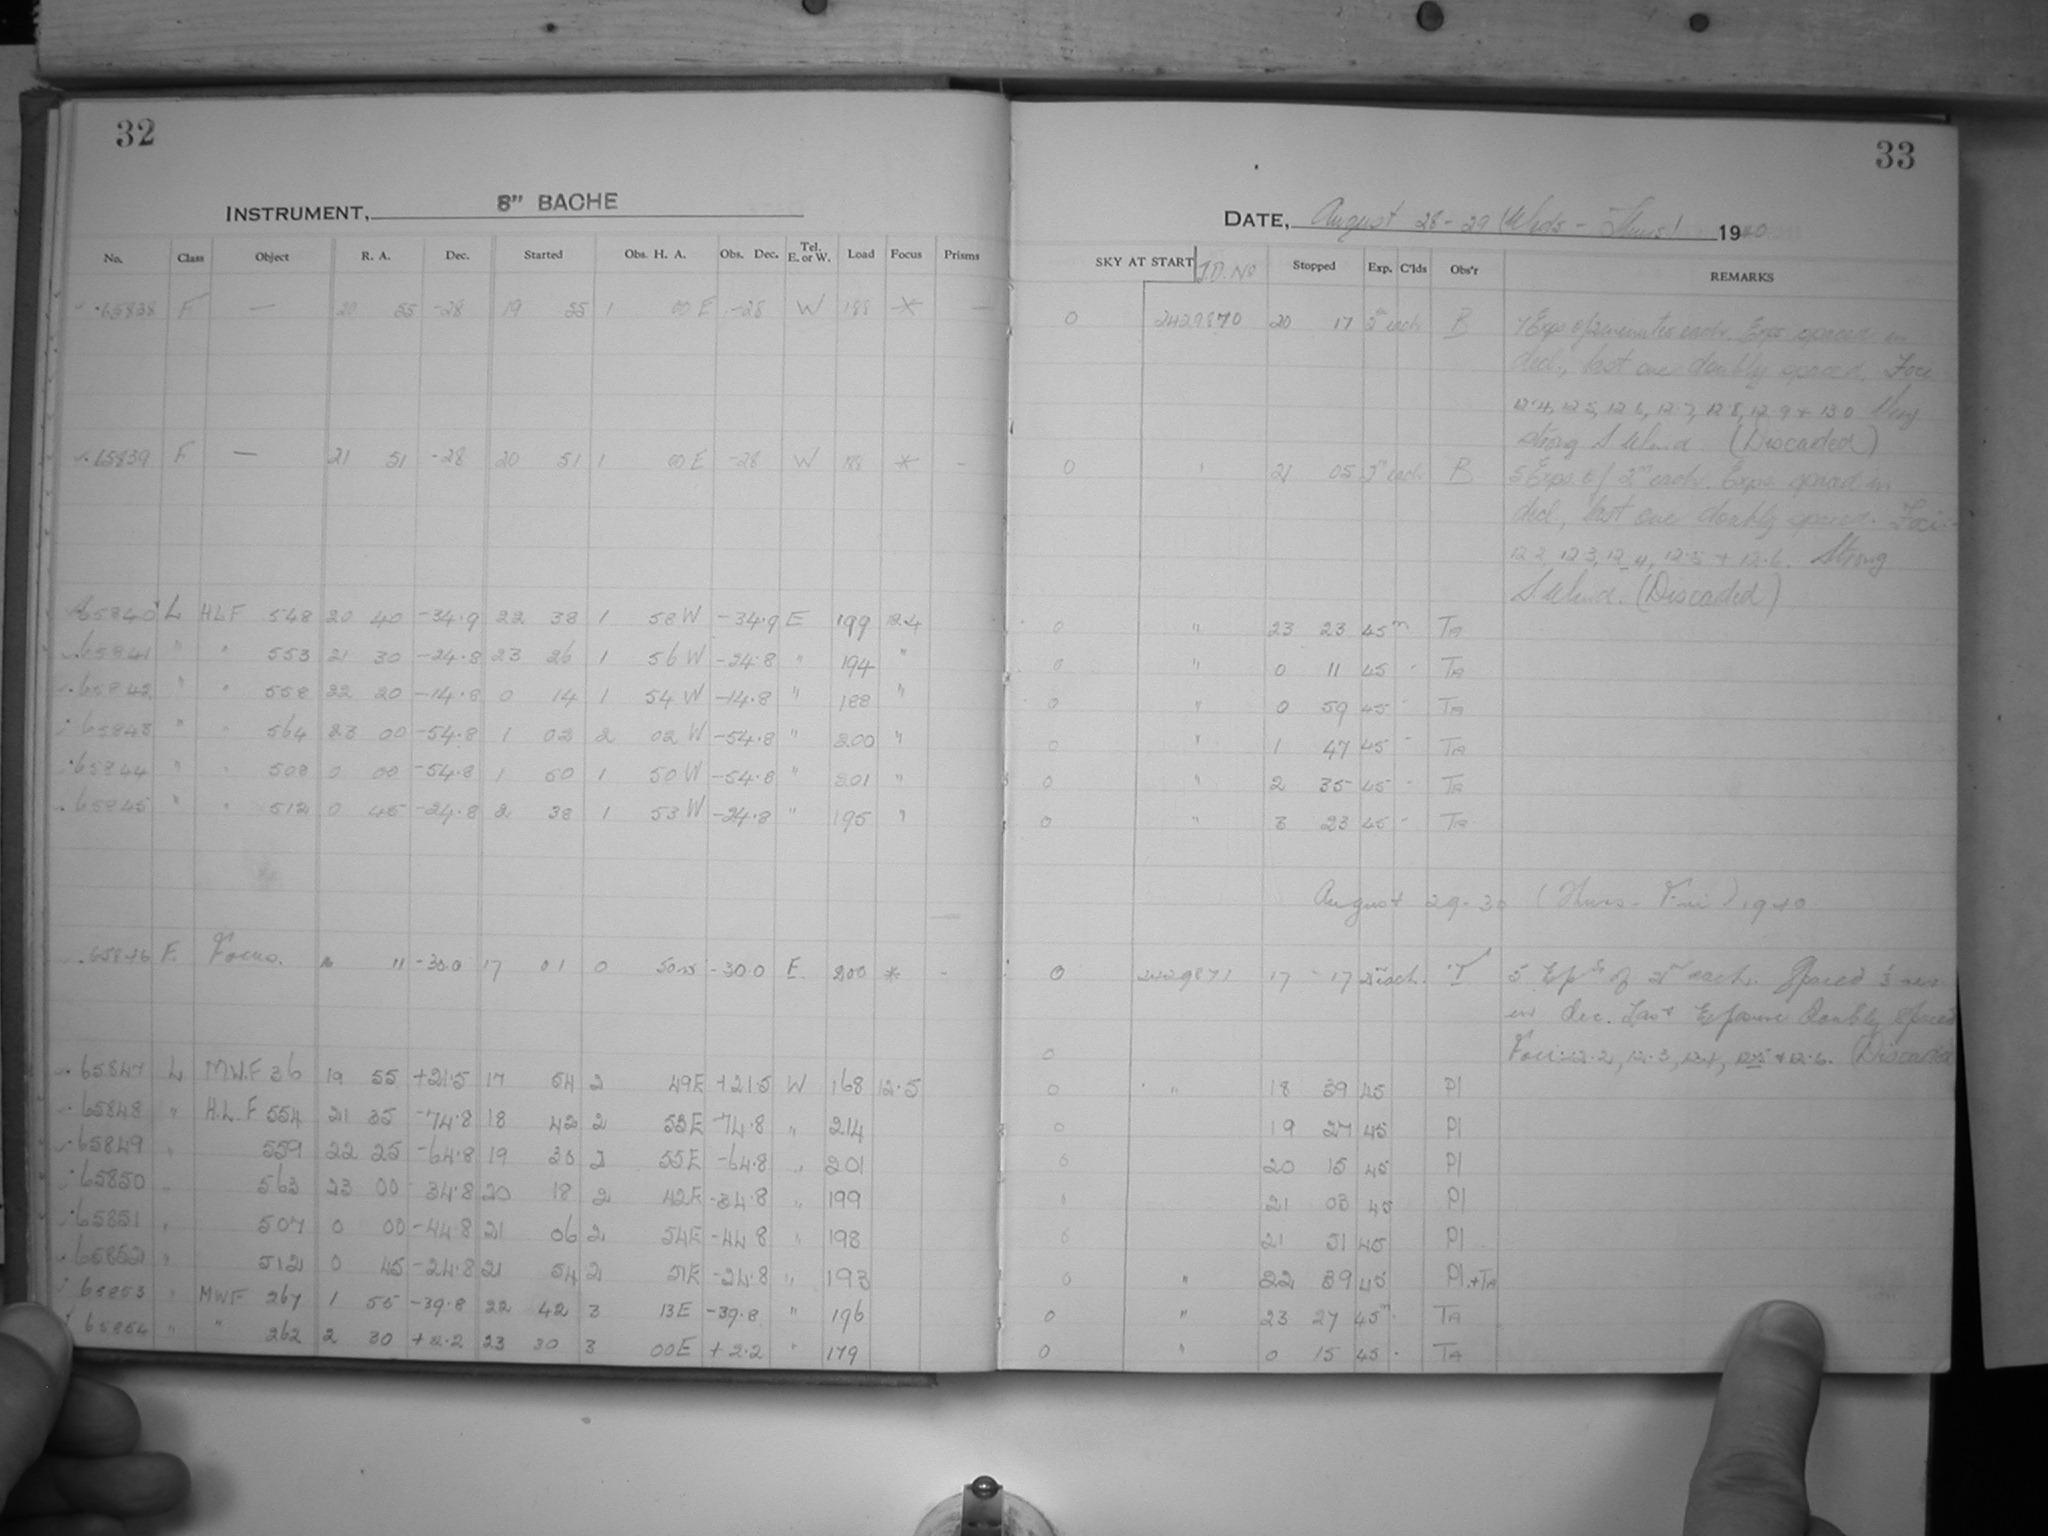 32
33
INSTRUMENT, 8" BACHE
DATE, August 28-29 (Weds - Thurs) 1940
No. Class Object R. A. Dec. Started Obs. H. A. Obs. Dec. Tel. E. or W. Load Focus Prisms SKY AT START J.D. No Stopped Exp. C'lds Obs'r REMARKS
65838 F — 20 55 -28 19 55 1 00 E -28 W 188 * — 0 2429870 20 17 2m each B 7 Exps of 2 minutes each. Exps spaced in
decl., last one doubly spaced. Foci
12.4, 12.5, 12.6, 12.7, 12.8, 12.9 + 13.0 Very
strong S Wind. (Discarded)
65839 F — 21 51 -28 20 51 1 00 E -28 W 188 * - 0 " 21 05 2m each B 5 Exps of 2m each. Exps spaced in
decl., last one doubly spaced. Foci-
12.2, 12.3, 12.4, 12.5 + 12.6. Strong
S Wind. (Discarded)
65840 L HLF 548 20 40 -34.9 22 38 1 58 W -34.9 E 199 12.4 0 " 23 23 45m TA
65841 " " 553 21 30 -24.8 23 26 1 56 W -24.8 " 194 " 0 " 0 11 45 TA
65842 " " 558 22 20 -14.8 0 14 1 54 W -14.8 " 188 " 0 " 0 59 45 TA
65843 " " 564 23 00 -54.8 1 02 2 02 W -54.8 " 200 " 0 " 1 47 45 TA
65844 " " 508 0 00 -54.8 1 50 1 50 W -54.8 " 201 " 0 " 2 35 45 TA
65845 " " 512 0 45 -24.8 2 38 1 53 W -24.8 " 195 " 0 " 3 23 45 TA
August 29-30 (Thurs - Fri) 1940
65846 F. Focus. 16 11 -30.0 17 01 0 50 W -30.0 E. 200 * - 0 2429871 17 17 2m each. T 5 Exps of 2m each. Spaced
in dec. Last Exposure Doubly Spaced
0 Foci: 12.2, 12.3, 12.4, 12.5 + 12.6. (Discarded
65847 L MWF 36 19 55 +21.5 17 54 2 49 E +21.5 W 168 12.5 0 " 18 39 45 Pl
65848 " H.L.F 554 21 35 -74.8 18 42 2 53 E -74.8 " 214 0 19 27 45 Pl
65849 " 559 22 25 -64.8 19 30 2 55 E -64.8 " 201 0 20 15 45 Pl
65850 " 563 23 00 34.8 20 18 2 42 E -34.8 " 199 21 03 45 Pl
65851 " 507 0 00 -44.8 21 06 2 54 E -44.8 " 198 0 21 51 45 Pl
65852 " 512 0 45 -24.8 21 54 2 51 E -24.8 " 193 0 " 22 39 45 Pl + TA
65853 " MWF 267 1 55 -39.8 22 42 3 13 E -39.8 " 196 0 " 23 27 45m TA
65854 " " 262 2 30 +2.2 23 30 3 00 E +2.2 " 179 0 " 0 15 45 TA